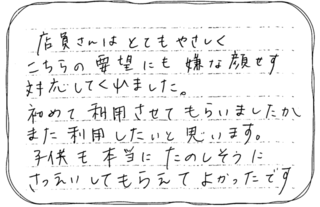 店員さんはとてもやさしく
こちらの要望にも嫌な顔せず
対応してくれました。
初めて利用させてもらいましたが
また利用したいと思います。
子供も本当にたのしそうに
さつえいしてもらえてよかったです